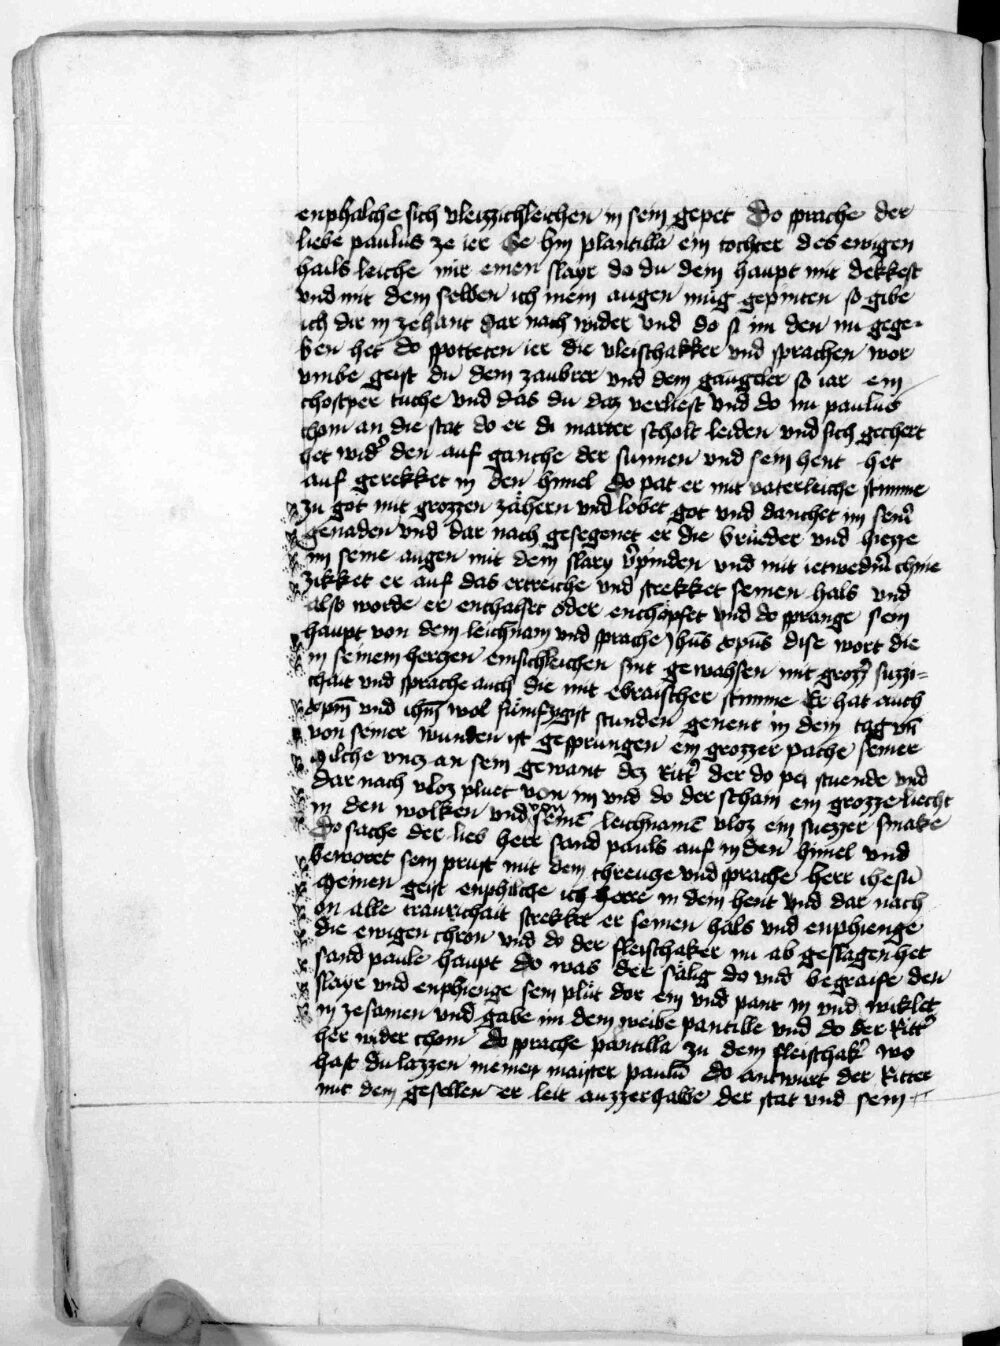 enphalche sich vleizzichleichen in sein gepet Do sprache der
liebe paulus ze ier Ge hin plantilla ein tochter des ewigen
hails leiche mir einen slayr do du dein haupt mit dekkest
vnd mit dem selben ich mein augen mug gepinten so gibe
ich dir in zehant dar nach wider vnd do si im den nu gege-
ben het do spotteten ier die vleischakker vnd sprachen wor
vmbe geist du dem zaubrer vnd dem gaugler so iar ein
chostper tuche vnd das du daz verliest vnd do nu paulus
chom an die stat do er di marter scholt leiden vnd sich gechert
het wid̾ den auf ganche der sunnen vnd sein hent het
auf gerekket in den himel do pat er mit vaterleiche stimme
zu got mit grozzen zähern vnd lobet got vnd danchet im sein̄
genaden vnd dar nach gesegenet er die brueder vnd hiezze
im seine augen mit dem slary v̾pinden vnd mit ietwedm̄ chnie
zikket er auf das ertreiche vnd strekket seinen hals vnd
also worde er enthalset oder enthöpfet vnd do sprange sein
haupt von dem leichnam vnd sprache Jhūs xpūs dise wort die
in seinem herczen einsichleichen sint gewahsen mit grozz̾ suzzi-
chait vnd sprache auch die mit ebraischer stimme Er hat auch
xpm̄ vnd ihm̄ wol fümfzgist stunden genent in dem tag vn̄
von seiner wunden ist gesprungen ein grozzer pache seiner
milche vncz an sein gewant dez Ritt̾ der do pei stuende vnd
dar nach vloz pluet von im vnd do der scham ein grozze liecht
in den wolken vnd von seinē leichnamē vloz ein suezzer smake
Do sache der lieb herr sand pauls auf in den himel vnd
beworet sein prust mit dem chreucze vnd sprache herr ihesu
meinen geist enphilche ich herre in dein hent vnd dar nach
on alle traurichait strekket er seinen hals vnd enphienge
die ewigen chron vnd do der fleischaker nu ab geslagen het
sand paule haupt Do was der sälig do vnd begraife den
slayr vnd enphienge sein plüt dor ein vnd pant in vnd wiklet
in zesamen vnd gabe im dem weibe pantille vnd do der Ritt̾
her wider chom Do sprache pantilla zu dem fleischak̾ wo
hast du lazzen meinen maister paulū Do antwurt der Ritter
mit dem gesellen er leit auzzerhalbe der stat vnd sein